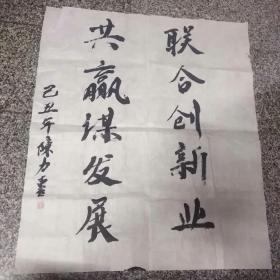 联合创新业
共赢谋发展
己丑年陈力書